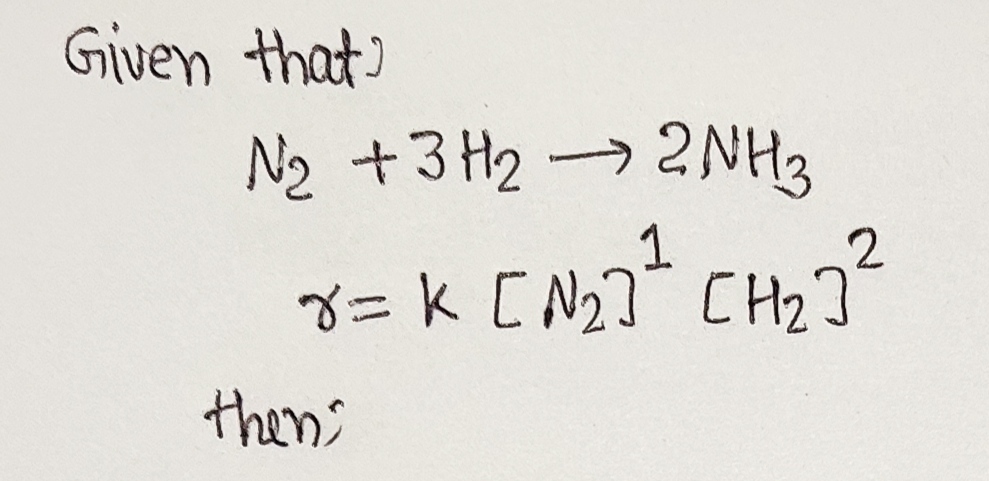 Given that;
N₂ + 3H₂ → 2NH₃
r = k [N₂]¹ [H₂]²
then;